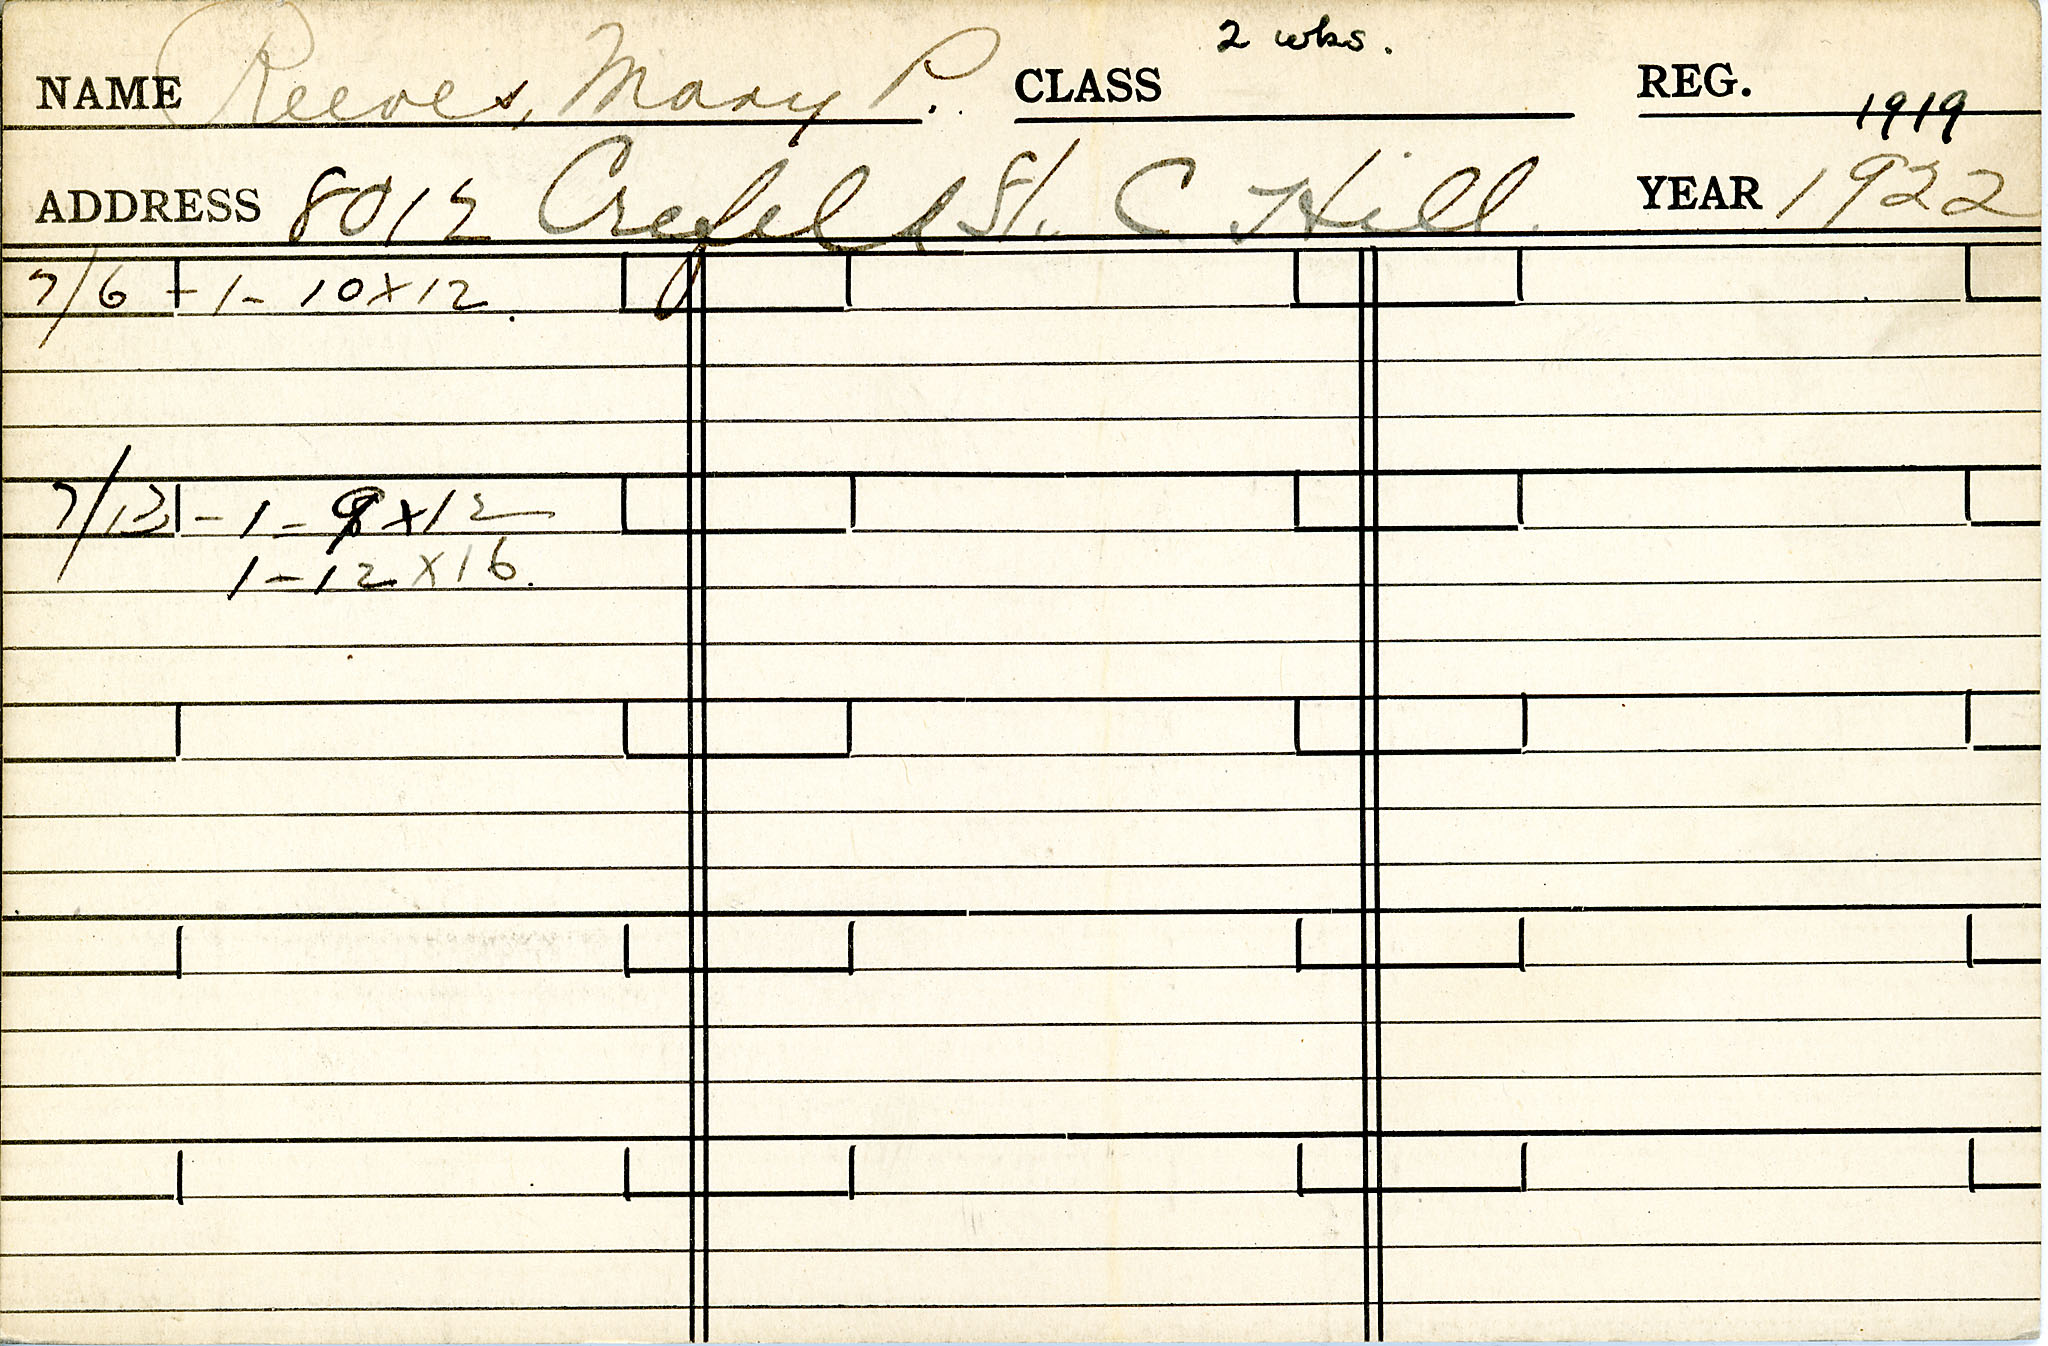 2 wks.
NAME Reeves, Mary P. CLASS REG. 1919
ADDRESS 8012 Crefeld St. C. Hill. YEAR 1922
7/6 - 1 - 10 x 12.
7/13 - 1 - 9 x 12
1 - 12 x 16.